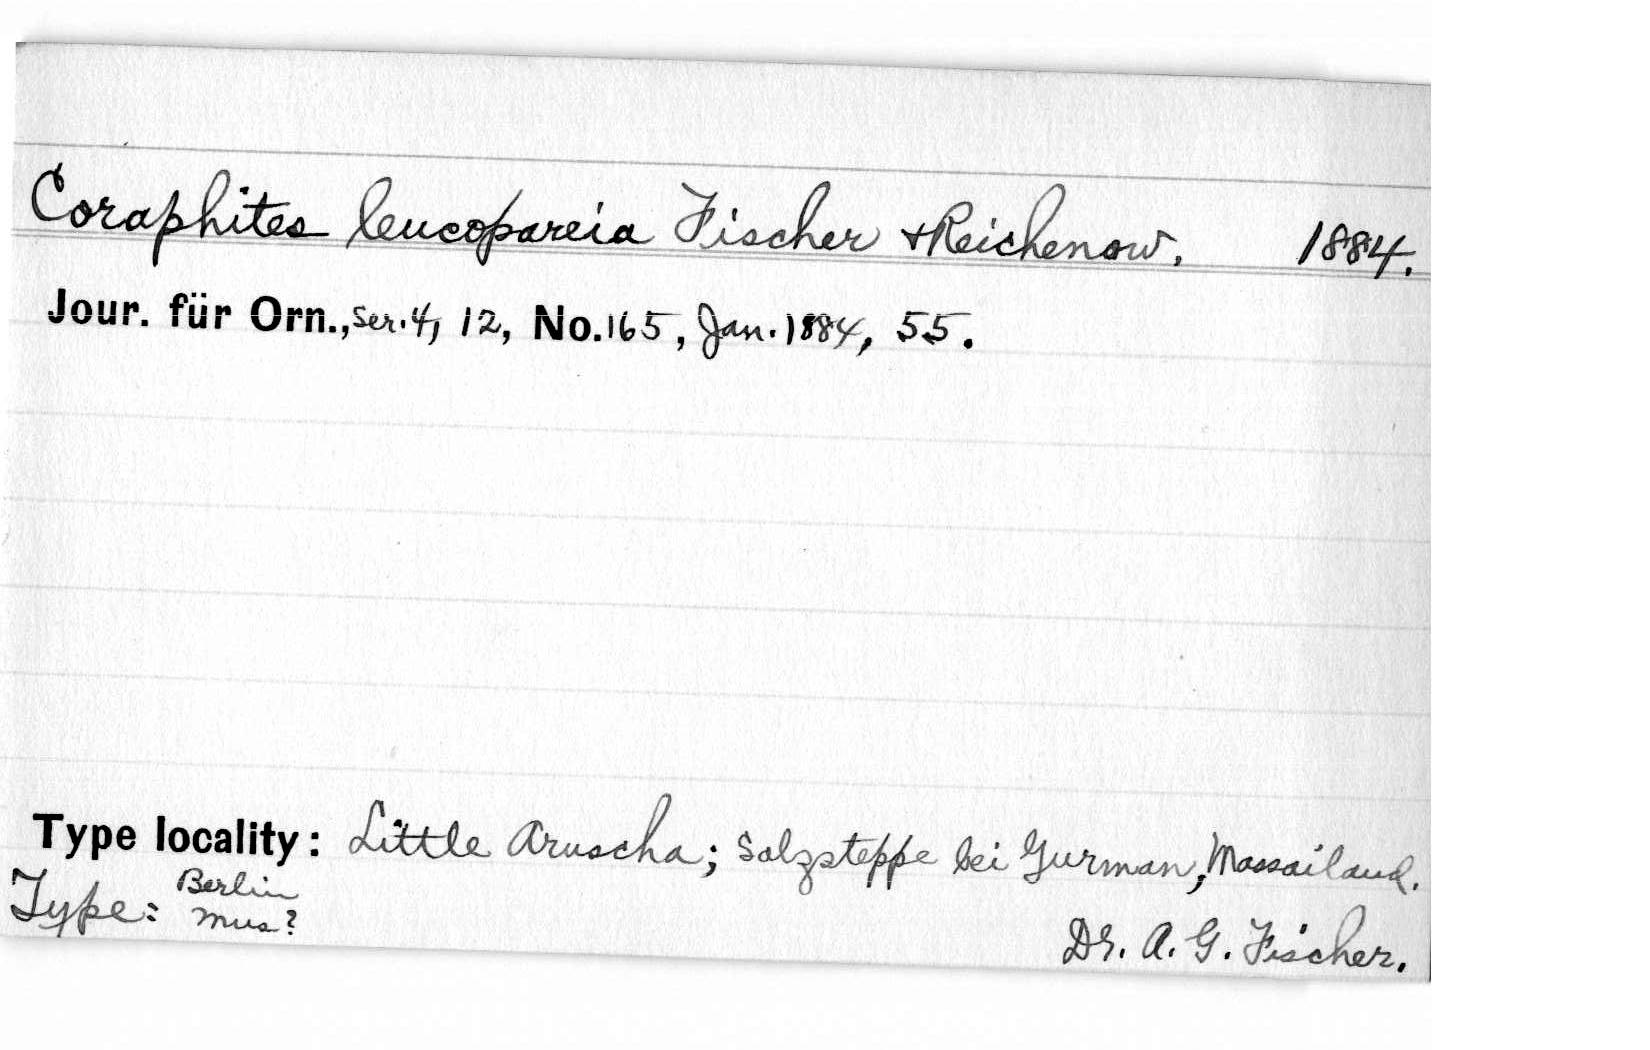 Coraphites leucopareia Fischer + Reichenow. 1884.
Jour. für Orn., Ser. 4, 12, No. 165, Jan. 1884, 55.
Type locality: Little Aruscha; Salzsteppe bei Gurman, Massailand.
Type: Berlin Mus?
Dr. A. G. Fischer.